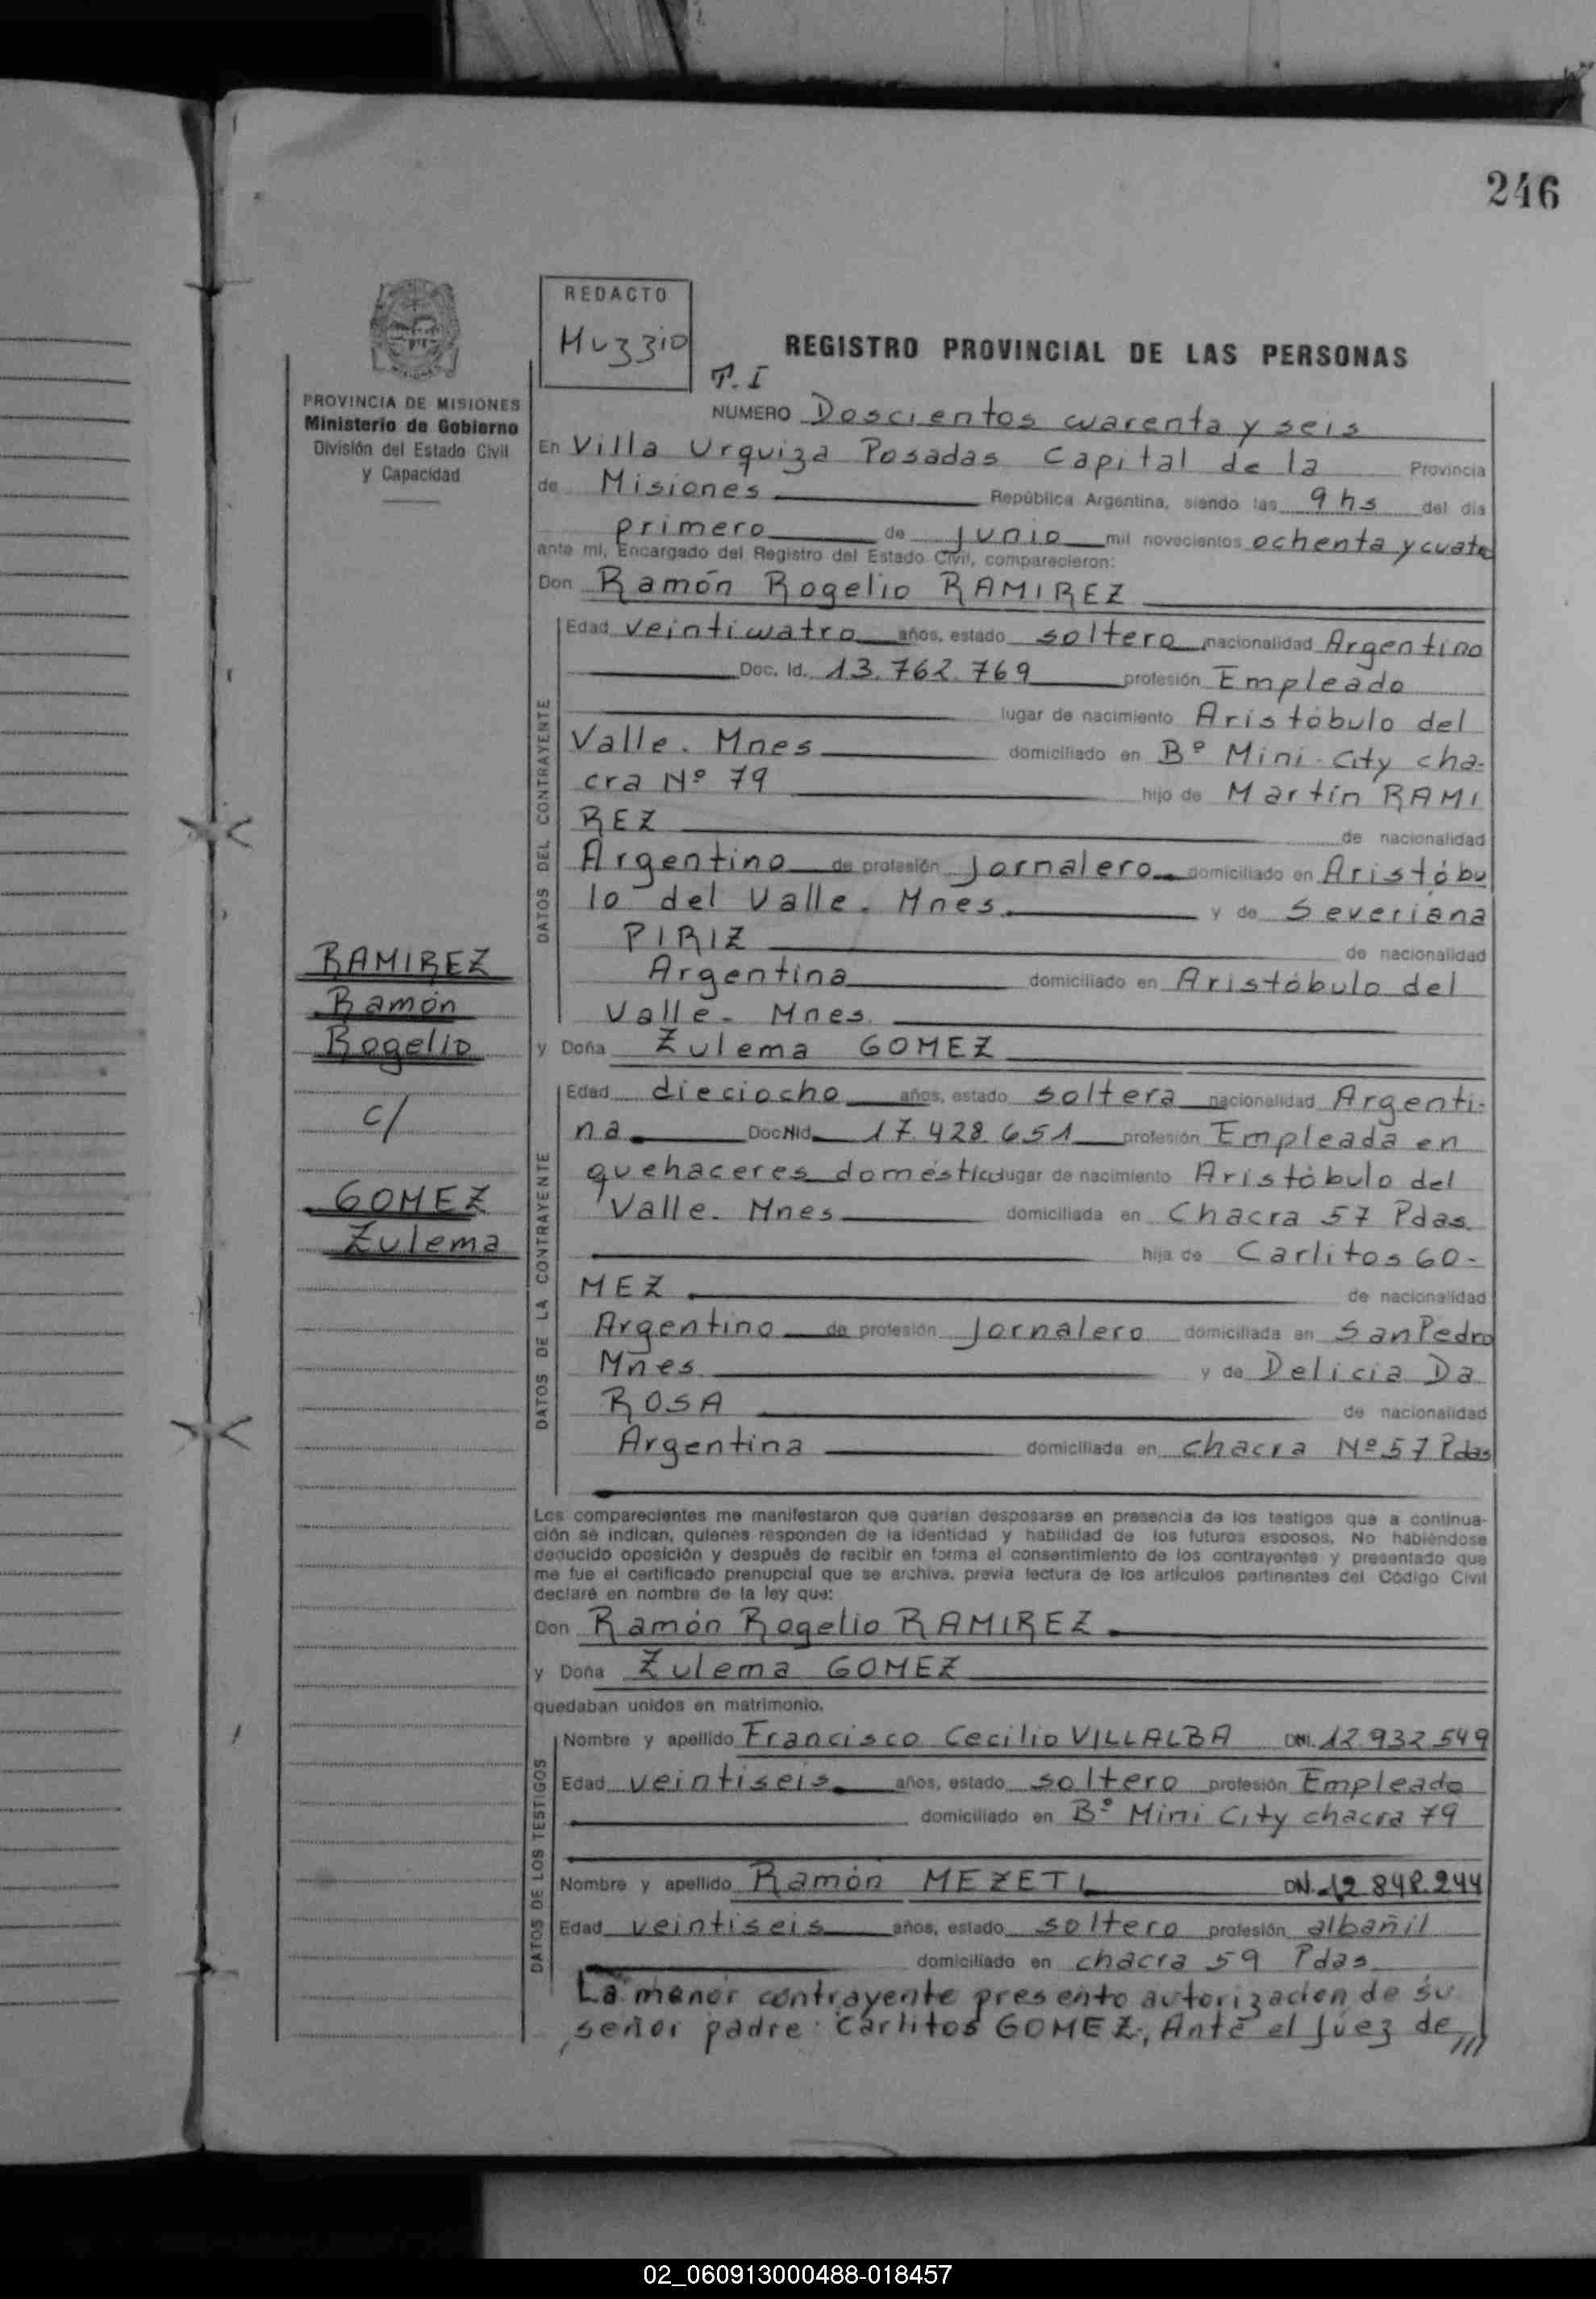 246
REDACTO
Muzzio
REGISTRO PROVINCIAL DE LAS PERSONAS
T. I
PROVINCIA DE MISIONES
Ministerio de Gobierno
División del Estado Civil
y Capacidad
NUMERO Doscientos cuarenta y seis
En Villa Urquiza Posadas Capital de la Provincia
de Misiones República Argentina, siendo las 9 hs del día
primero de Junio mil novecientos ochenta y cuatro
ante mí, Encargado del Registro del Estado Civil, comparecieron:
Don Ramón Rogelio RAMIREZ
DATOS DEL CONTRAYENTE
Edad veinticuatro años, estado soltero nacionalidad Argentino
Doc. Id. 13.762.769 profesión Empleado
lugar de nacimiento Aristóbulo del
Valle. Mnes domiciliado en Bº Mini-City cha-
cra Nº 79 hijo de Martín RAMI
REZ de nacionalidad
Argentino de profesión Jornalero domiciliado en Aristóbu
lo del Valle. Mnes. y de Severiana
PIRIZ de nacionalidad
Argentina domiciliado en Aristóbulo del
Valle- Mnes.
RAMIREZ
Ramón
Rogelio
c/
GOMEZ
Zulema
y Doña Zulema GOMEZ
DATOS DE LA CONTRAYENTE
Edad dieciocho años, estado soltera nacionalidad Argenti-
na DocNId 17.428.651 profesión Empleada en
quehaceres domésticos lugar de nacimiento Aristóbulo del
Valle. Mnes domiciliada en Chacra 57 Pdas.
hija de Carlitos GO-
MEZ de nacionalidad
Argentino de profesión Jornalero domiciliada en San Pedro
Mnes y de Delicia Da
ROSA de nacionalidad
Argentina domiciliada en chacra Nº 57 Pdas
Los comparecientes me manifestaron que querían desposarse en presencia de los testigos que a continua-
ción se indican, quienes responden de la identidad y habilidad de los futuros esposos. No habiéndose
deducido oposición y después de recibir en forma el consentimiento de los contrayentes y presentado que
me fue el certificado prenupcial que se archiva, previa lectura de los artículos pertinentes del Código Civil
declaré en nombre de la ley que:
Don Ramón Rogelio RAMIREZ
y Doña Zulema GOMEZ
quedaban unidos en matrimonio.
DATOS DE LOS TESTIGOS
Nombre y apellido Francisco Cecilio VILLALBA DNI. 12.932.549
Edad veintiseis años, estado soltero profesión Empleado
domiciliado en Bº Mini City chacra 79
Nombre y apellido Ramón MEZETI DN. 12.848.244
Edad veintiseis años, estado soltero profesión albañil
domiciliado en chacra 59 Pdas
La menor contrayente presentó autorización de su
señor padre Carlitos GOMEZ, Ante el Juez de ///
02_060913000488-018457